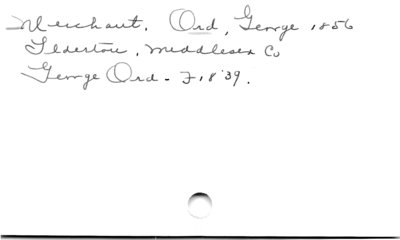 Merchant. Ord, George 1856
Ilderton, Middlesex Co
George Ord - F18'39.